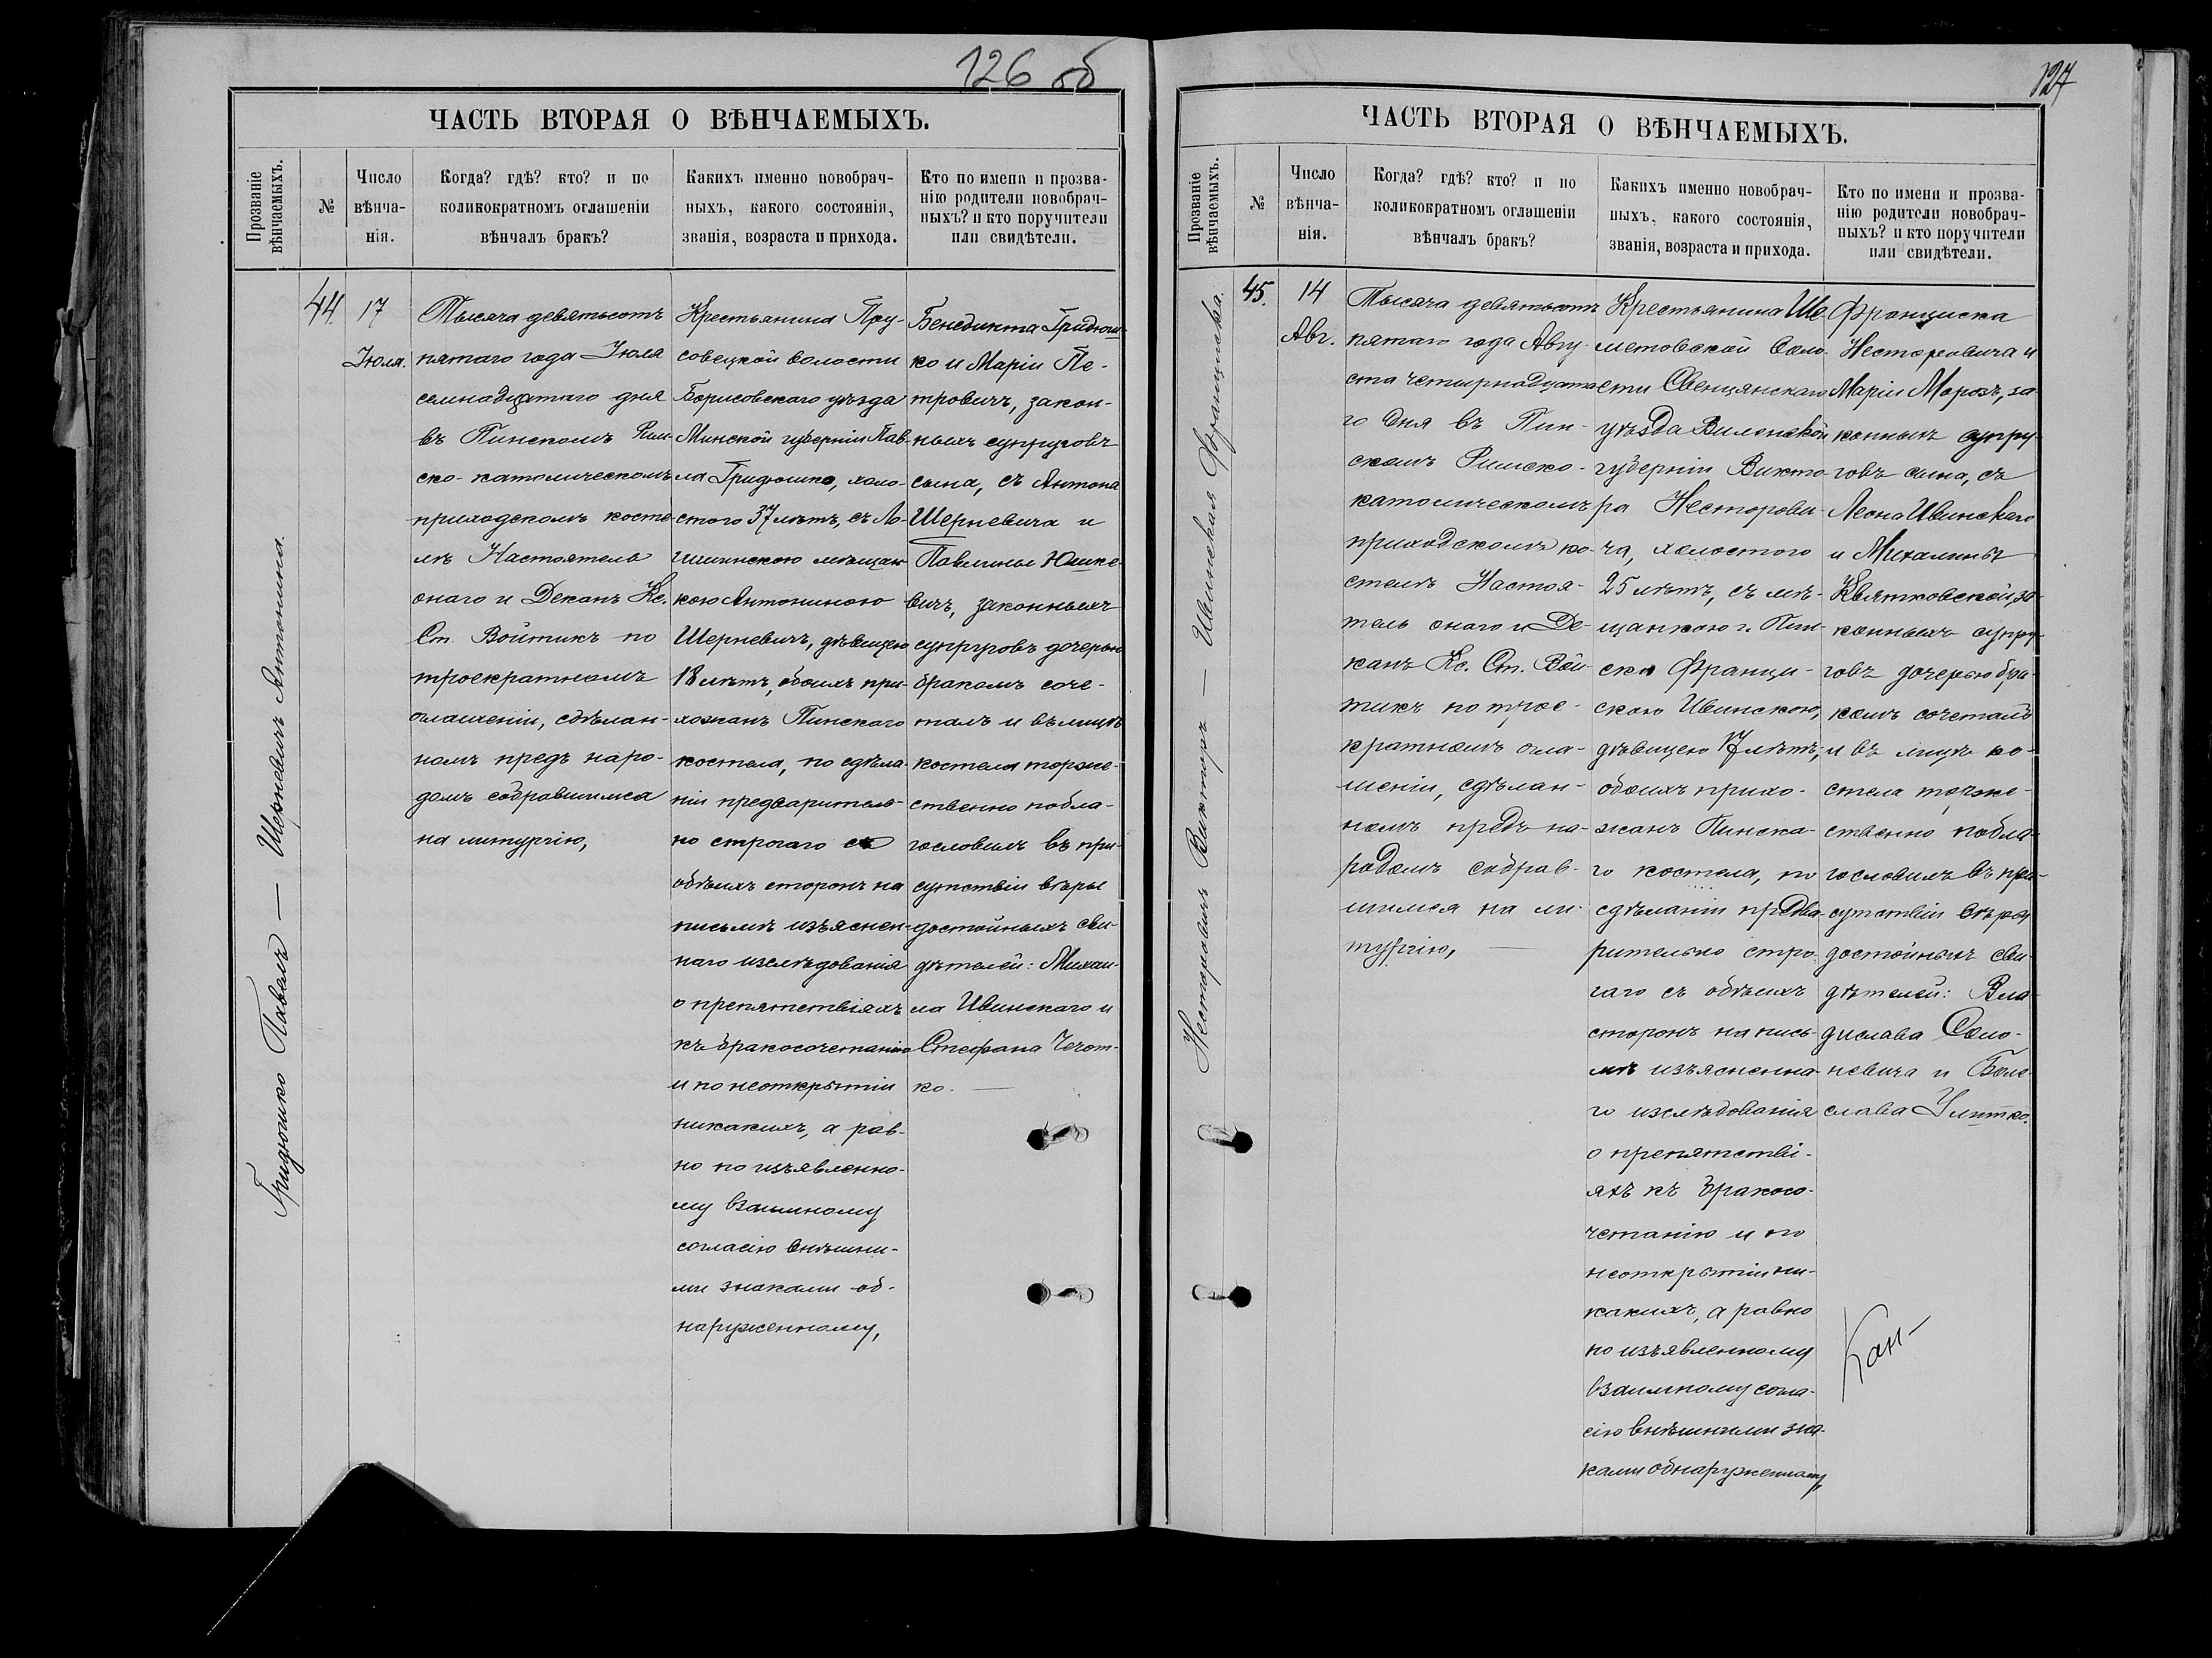 126 об
ЧАСТЬ ВТОРАЯ О ВѢНЧАЕМЫХЪ.
Прозваніе
вѣнчаемыхъ.
№
Число
вѣнча-
нія.
Когда? гдѣ? кто? и по
коликократномъ оглашеніи
вѣнчалъ бракъ?
Какихъ именно новобрач-
ныхъ, какого состоянія,
званія, возраста и прихода.
Кто по имени и прозва-
нію родители новобрач-
ныхъ? и кто поручители
или свидѣтели.
Гридюшко Павелъ — Шерневичъ Антонина.
44.
17
Іюля.
Тысяча девятьсотъ
пятаго года Іюля
семнадцатаго дня
въ Пинскомъ Рим-
ско-католическомъ
приходскомъ косте-
лѣ Настоятель
онаго и Деканъ Кс.
Ст. Войтикъ по
троекратномъ
оглашеніи, сдѣлан-
номъ предъ наро-
домъ собравшимся
на литургію,
Крестьянина Пру-
совецкой волости
Борисовскаго уѣзда
Минской губерніи Пав-
ла Гридюшко, холо-
стого 37 лѣтъ, съ Ло-
гишинскою мѣщан-
кою Антониною
Шерневичъ, дѣвицею
18 лѣтъ, обоихъ при-
хожанъ Пинскаго
костела, по сдѣла-
ніи предваритель-
но строгаго съ
обѣихъ сторонъ на
письмѣ изъяснен-
наго изслѣдованія
о препятствіяхъ
къ бракосочетанію
и по неоткрытіи
никакихъ, а рав-
но по изъявленно-
му взаимному
согласію внѣшни-
ми знаками об-
наруженному,
Бенедикта Гридюш-
ко и Маріи Пе-
тровичъ, закон-
ныхъ супруговъ
сына, съ Антона
Шерневича и
Павлины Юшке-
вичъ, законныхъ
супруговъ дочерью
бракомъ соче-
талъ и въ лицѣ
костела торже-
ственно побла-
гословилъ въ при-
сутствіи вѣры
достойныхъ сви-
дѣтелей: Михаи-
ла Ивинскаго и
Стефана Чечот-
ко.
127
ЧАСТЬ ВТОРАЯ О ВѢНЧАЕМЫХЪ.
Прозваніе
вѣнчаемыхъ.
№
Число
вѣнча-
нія.
Когда? гдѣ? кто? и по
коликократномъ оглашеніи
вѣнчалъ бракъ?
Какихъ именно новобрач-
ныхъ, какого состоянія,
званія, возраста и прихода.
Кто по имени и прозва-
нію родители новобрач-
ныхъ? и кто поручители
или свидѣтели.
Несторовичъ Викторъ — Ивинская Франциска.
45.
14
Авг.
Тысяча девятьсотъ
пятаго года Авгу-
ста четырнадцата-
го дня въ Пин-
скомъ Римско-
католическомъ
приходскомъ ко-
стелѣ Настоя-
тель онаго и Де-
канъ Кс. Ст. Вой-
тикъ по трое-
кратномъ огла-
шеніи, сдѣлан-
номъ предъ на-
родомъ собрав-
шимся на ли-
тургію,
Крестьянина Ше-
метовской воло-
сти Свенцянскаго
уѣзда Виленской
губерніи Викто-
ра Несторови-
ча, холостого
25 лѣтъ, съ мѣ-
щанкою г. Пин-
ска Франци-
скою Ивинскою,
дѣвицею 17 лѣтъ,
обоихъ прихо-
жанъ Пинска-
го костела, по
сдѣланіи предва-
рительно стро-
гаго съ обѣихъ
сторонъ на пись-
мѣ изъясненна-
го изслѣдованія
о препятстві-
яхъ къ бракосо-
четанію и по
неоткрытіи ни-
какихъ, а равно
по изъявленному
взаимному согла-
сію внѣшними зна-
ками обнаруженному,
Франциска
Несторовича и
Маріи Морозъ, за-
конныхъ супру-
говъ сына, съ
Леона Ивинскаго
и Михалины
Квятковской, за-
конныхъ супру-
говъ дочерью бра-
комъ сочеталъ
и въ лицѣ ко-
стела торже-
ственно побла-
гословилъ въ при-
сутствіи вѣры
достойныхъ сви-
дѣтелей: Вла-
дислава Само-
невича и Боле-
слава Улитко.
Кан-